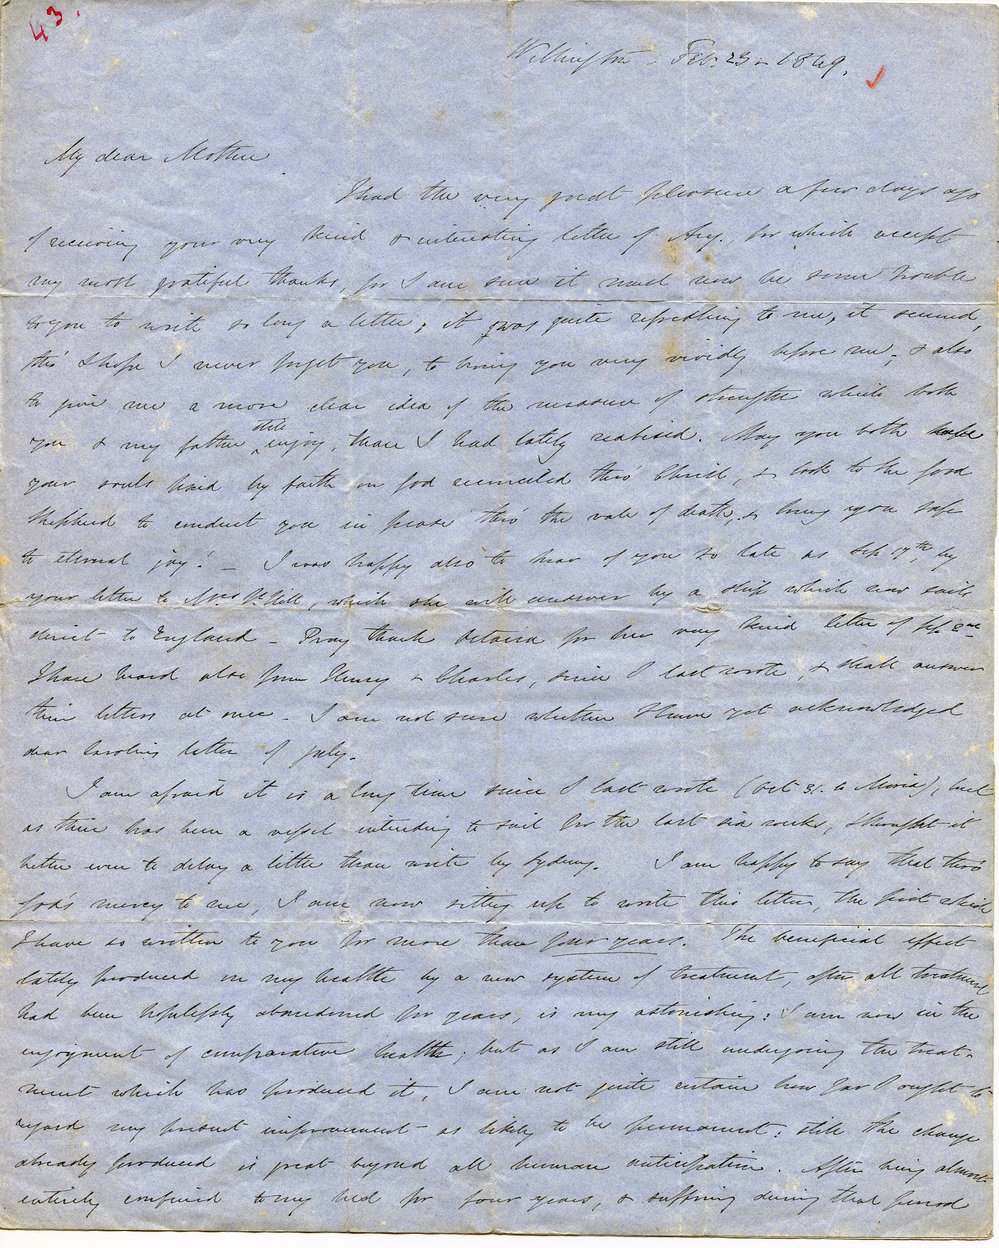 43.
Wellington. Feb. 23 - 1849.
My dear Mother
I had the very great pleasure a few days ago
of receiving your very kind & interesting letter of Aug., for which accept
my most grateful thanks, for I am sure it must now be some trouble
to you to write so long a letter; it was quite refreshing to me, it seemed,
tho' I hope I never forget you, to bring you very vividly before me; & also
to give me a more clear idea of the measure of strength which both
you & my father still enjoy, than I had lately realised. May you both
your souls by faith on God reconciled thro' Christ, & look to the good
Shepherd to conduct you in peace thro' the vale of death, & bring you safe
to eternal joy! - I was happy also to hear of you so late as Sep 17th, by
your letter to Mrs , which she will answer by a ship which now sails
direct to England - Pray thank Octavia for her very kind letter of Sep.
I have heard also from Henry & Charles, since I last wrote, & shall answer
their letters at once - I am not sure whether I have yet acknowledged
dear Caroline's letter of July.
I am afraid it is a long time since I last wrote (Oct 31. to Maria), but
as there has been a vessel intending to sail for the last six weeks, I thought it
better even to delay a little than write by Sydney. I am happy to say that thro'
God's mercy to me, I am now sitting up to write this letter, the first which
I have so written to you for more than four years. The beneficial effect
lately produced on my health by a new system of treatment, after all treatment
had been hopelessly abandoned for years, is very astonishing: I am now in the
enjoyment of comparative health; but as I am still undergoing the treat-
ment which has produced it, I am not quite certain how far I ought to
regard my present improvement as likely to be permanent: still the change
already produced is great beyond all human anticipation. After being almost
entirely confined to my bed for four years, & suffering during that period